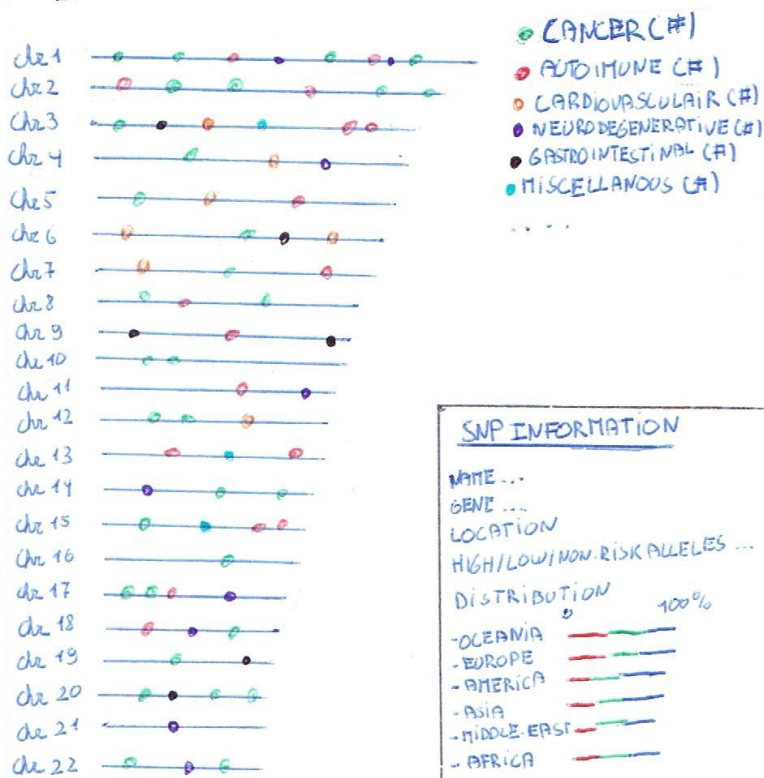 chr 1
chr 2
chr 3
chr 4
chr 5
chr 6
chr 7
chr 8
chr 9
chr 10
chr 11
chr 12
chr 13
chr 14
chr 15
chr 16
chr 17
chr 18
chr 19
chr 20
chr 21
chr 22
CANCER (#)
AUTOIMUNE (#)
CARDIOVASCULAIR (#)
NEURODEGENERATIVE (#)
GASTROINTESTINAL (#)
MISCELLANOUS (#)
....
SNP INFORMATION
NAME ...
GENE ...
LOCATION
HIGH/LOW/NON-RISK ALLELES ...
DISTRIBUTION
0 100%
-OCEANIA
-EUROPE
-AMERICA
-ASIA
-MIDDLE-EAST
-AFRICA